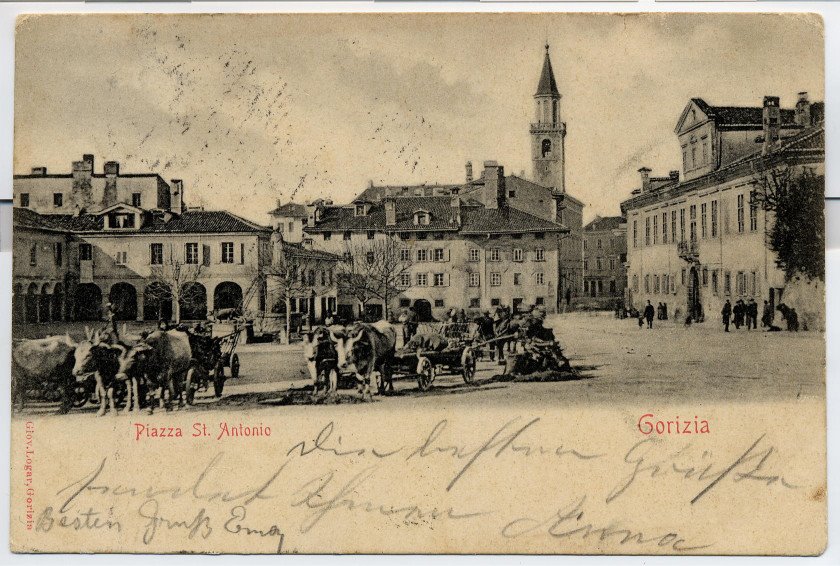 Piazza St. Antonio
Gorizia
Giov. Logar, Gorizia
Die besten Grüße
sendet Ihnen Anna
Besten Gruß Ema